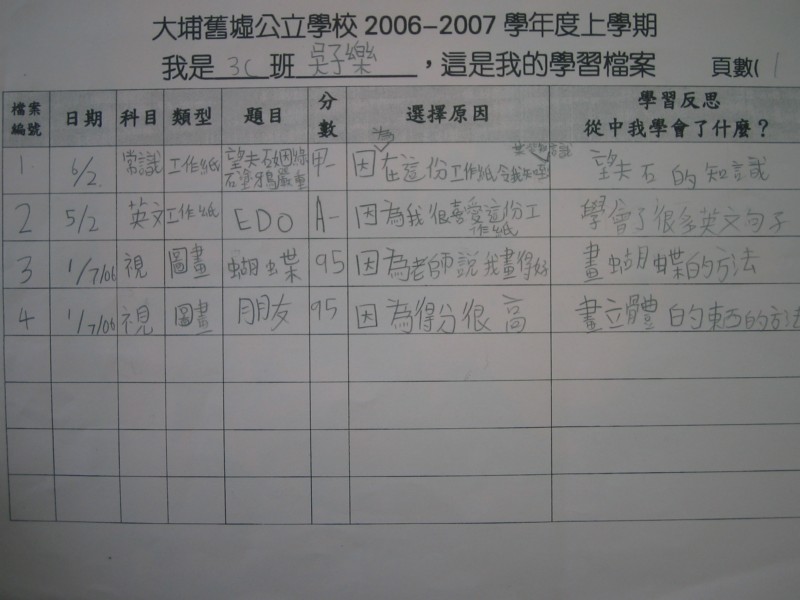 大埔舊墟公立學校 2006-2007 學年度上學期
我是 3C 班 吳子樂 ，這是我的學習檔案 頁數( 1
檔案編號 日期 科目 類型 題目 分數 選擇原因 學習反思
從中我學會了什麼？
1 6/2. 常識 工作紙 望夫石 石塗鴉嚴重 甲- 因為在這份工作紙 望夫石的知識
2 5/2 英文 工作紙 EDO A- 因為我很喜愛這份工作紙 學會了很多英文句子
3 1/7/06 視 圖畫 蝴蝶 95 因為老師說我畫得好 畫蝴蝶的方法
4 1/7/06 視 圖畫 朋友 95 因為得分很高 畫立體的東西的方法